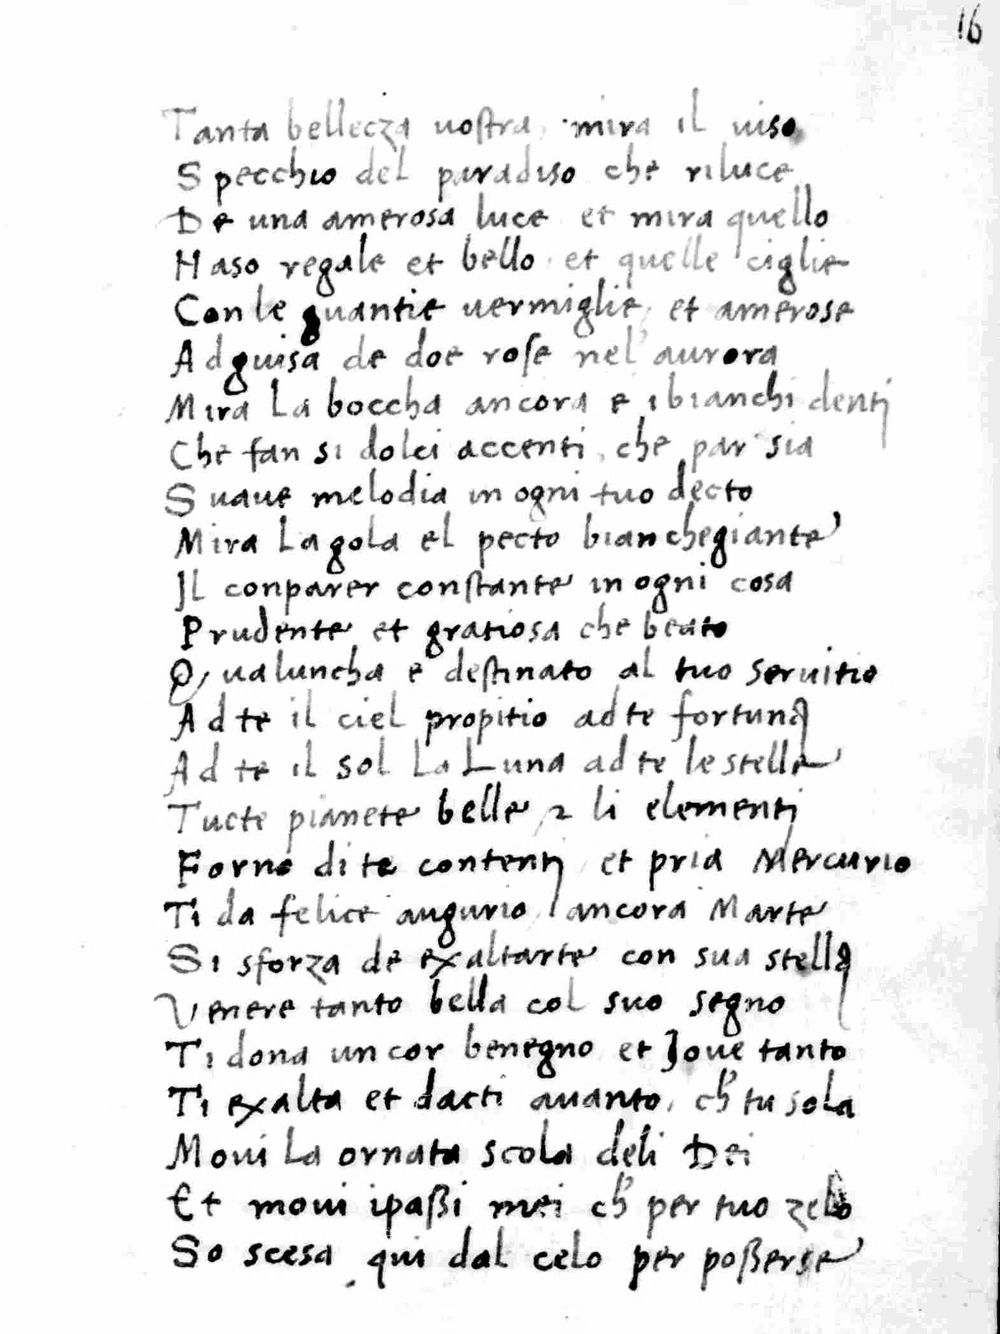 16
Tanta bellecza uostra, mira il uiso
Specchio del paradiso che riluce
De una amerosa luce et mira quello
Naso regale et bello et quelle ciglie
Con le guantie uermiglie, et amerose
Ad guisa de doe rose nel' aurora
Mira La boccha ancora e i bianchi denti
Che fan si dolci accenti, che par sia
Suaue melodia in ogni tuo decto
Mira La gola el pecto bianchegiante
Il conparer constante in ogni cosa
Prudente et gratiosa che beato
Qualuncha e destinato al tuo seruitio
Ad te il ciel propitio ad te fortuna
Ad te il sol La Luna ad te le stelle
Tucte pianete belle, & li elementi
Forno di te contenti et pria Mercurio
Ti da felice augurio ancora Marte
Si sforza de exaltarte con sua stella
Venere tanto bella col suo segno
Ti dona un cor benegno et Joue tanto
Ti exalta et dacti auanto, ch' tu sola
Moui La ornata scola deli Dei
Et moui i paßi mei ch' per tuo zelo
So scesa qui dal celo per poßerse